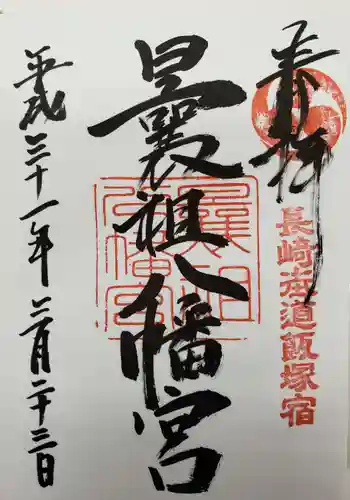 奉拝
長崎街道飯塚宿
曩祖八幡宮
平成三十一年二月二十三日